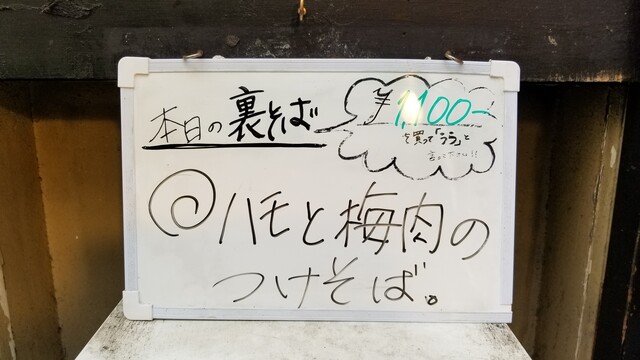 本日の裏そば
¥1,100-
を買って「うら」と
言って下さい!!
@ハモと梅肉の
つけそば。